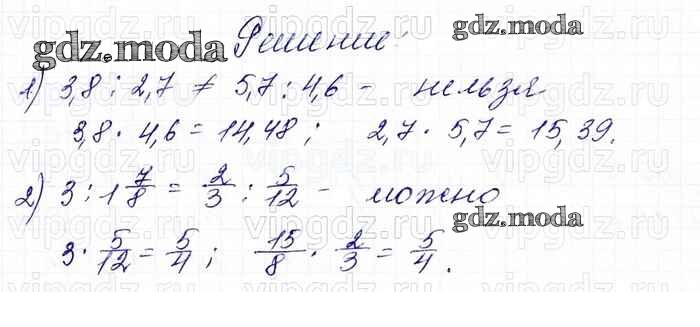 gdz.moda Решение:
1) 3,8 : 2,7 ≠ 5,7 : 4,6 - нельзя
3,8 · 4,6 = 14,48 ; 2,7 · 5,7 = 15,39.
2) 3 : 1 7/8 = 2/3 : 5/12 - можно
gdz.moda
3 · 5/12 = 5/4 ; 15/8 · 2/3 = 5/4 .